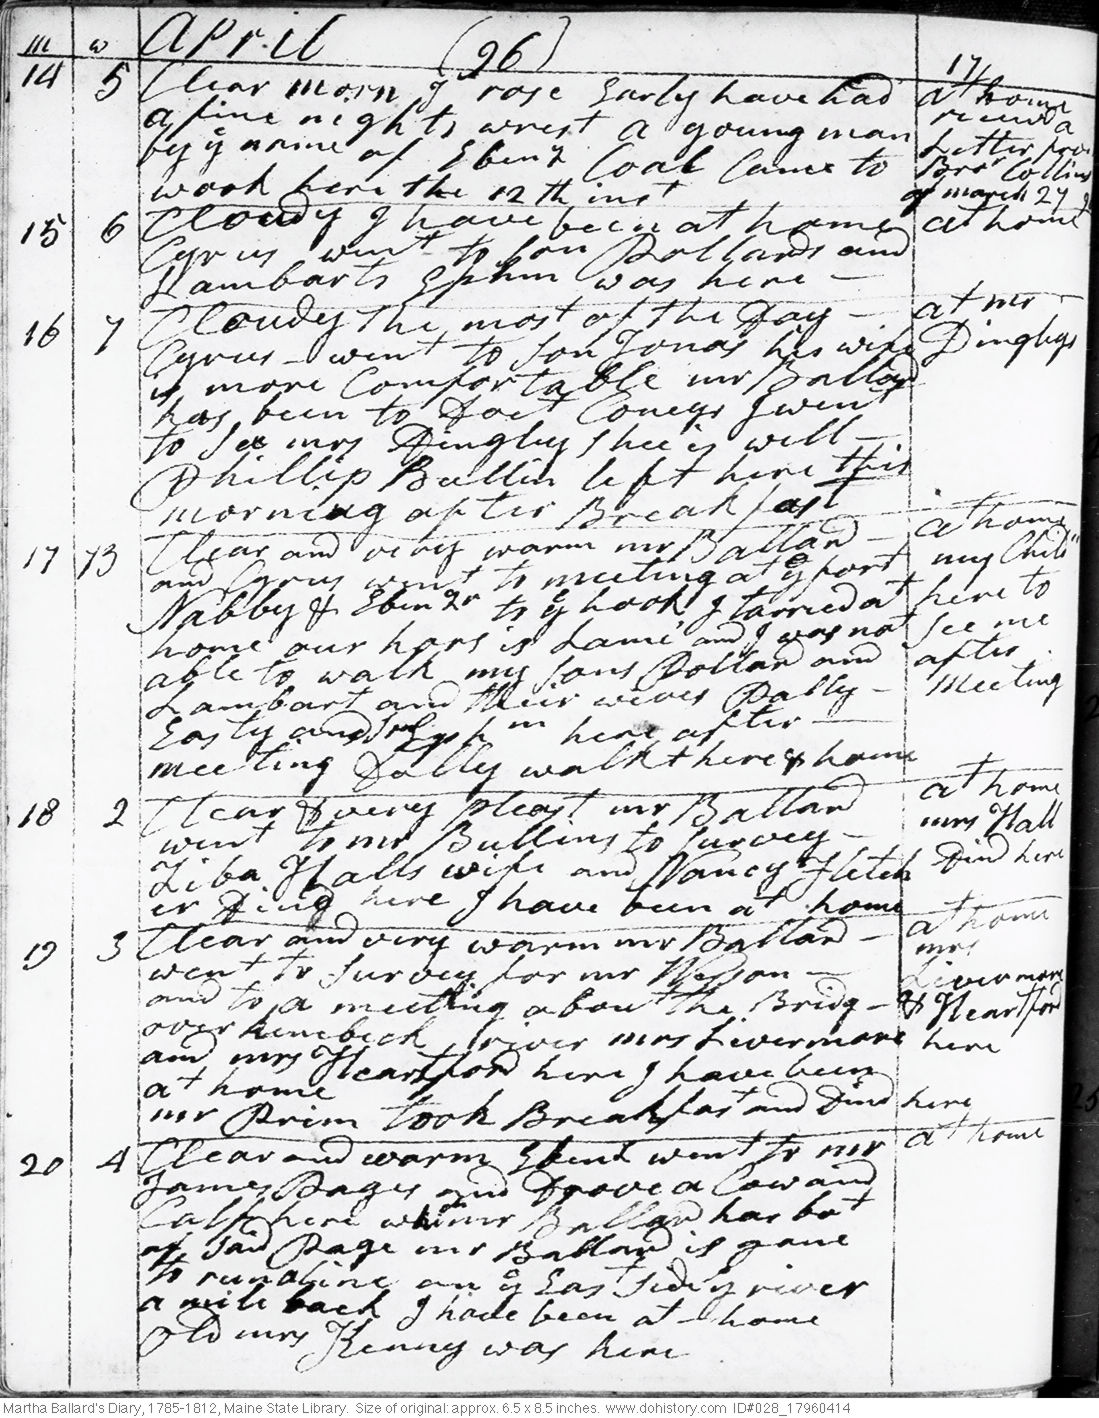 m w April (96) 179
14 5 Clear morn I rose Early have had
a fine nights wrest a young man
by ye name of Ebenzr Coal Came to
work here the 12th inst
at home
receivd a
Letter from
Bror Collins
of march 27
15 6 Cloudy I have been at home
Cyrus went to son Pollards and
Lambarts Ephm was here –
at home
16 7 Cloudy the most of the Day –
Cyrus – went to son Jonas his wife
is more Comfortable mr Ballard
has been to Doct Coneys I went
to See mrs Dingley shee is well –
Phillip Bullin left here this
morning after Breakfast
at mr
Dingleys
17 73 Clear and very warm mr Ballard –
and Cyrus went to meeting at ye fort
Nabby & Ebenzr to ye hook I tarried at
home our hors is Lame and I was not
able to walk my sons Pollard and
Lambart and their wives Dally –
Easty and Son Ephm here after –
meeting Dolly walkt here & home
at home
my Childn
here to
see me
after
meeting
18 2 Clear & very pleast mr Ballard
went to mr Bullins to survey –
Ziba Halls wife and Nancy Fletch
er Dind here I have been at home
at home
mrs Hall
Dind here
19 3 Clear and very warm mr Ballard –
went to survey for mr Wesson –
and to a meeting about the Bridg –
over kenebeck river mrs Livermore
and mrs Heartford here I have been
at home
mr Prim took Breakfast and Dind here
at home
mrs
Livermore
& Heartford
here
20 4 Clear and warm Ebenr went to mr
James Pages and Drove a Cow and
Calf here which mr Ballard has bot
of said Page mr Ballard is gone
to run a line on ye East side ye river
a mile back I have been at – home
old mrs Kenny was here
at home
Martha Ballard's Diary, 1785-1812, Maine State Library. Size of original: approx. 6.5 x 8.5 inches. www.dohistory.com ID#028_17960414